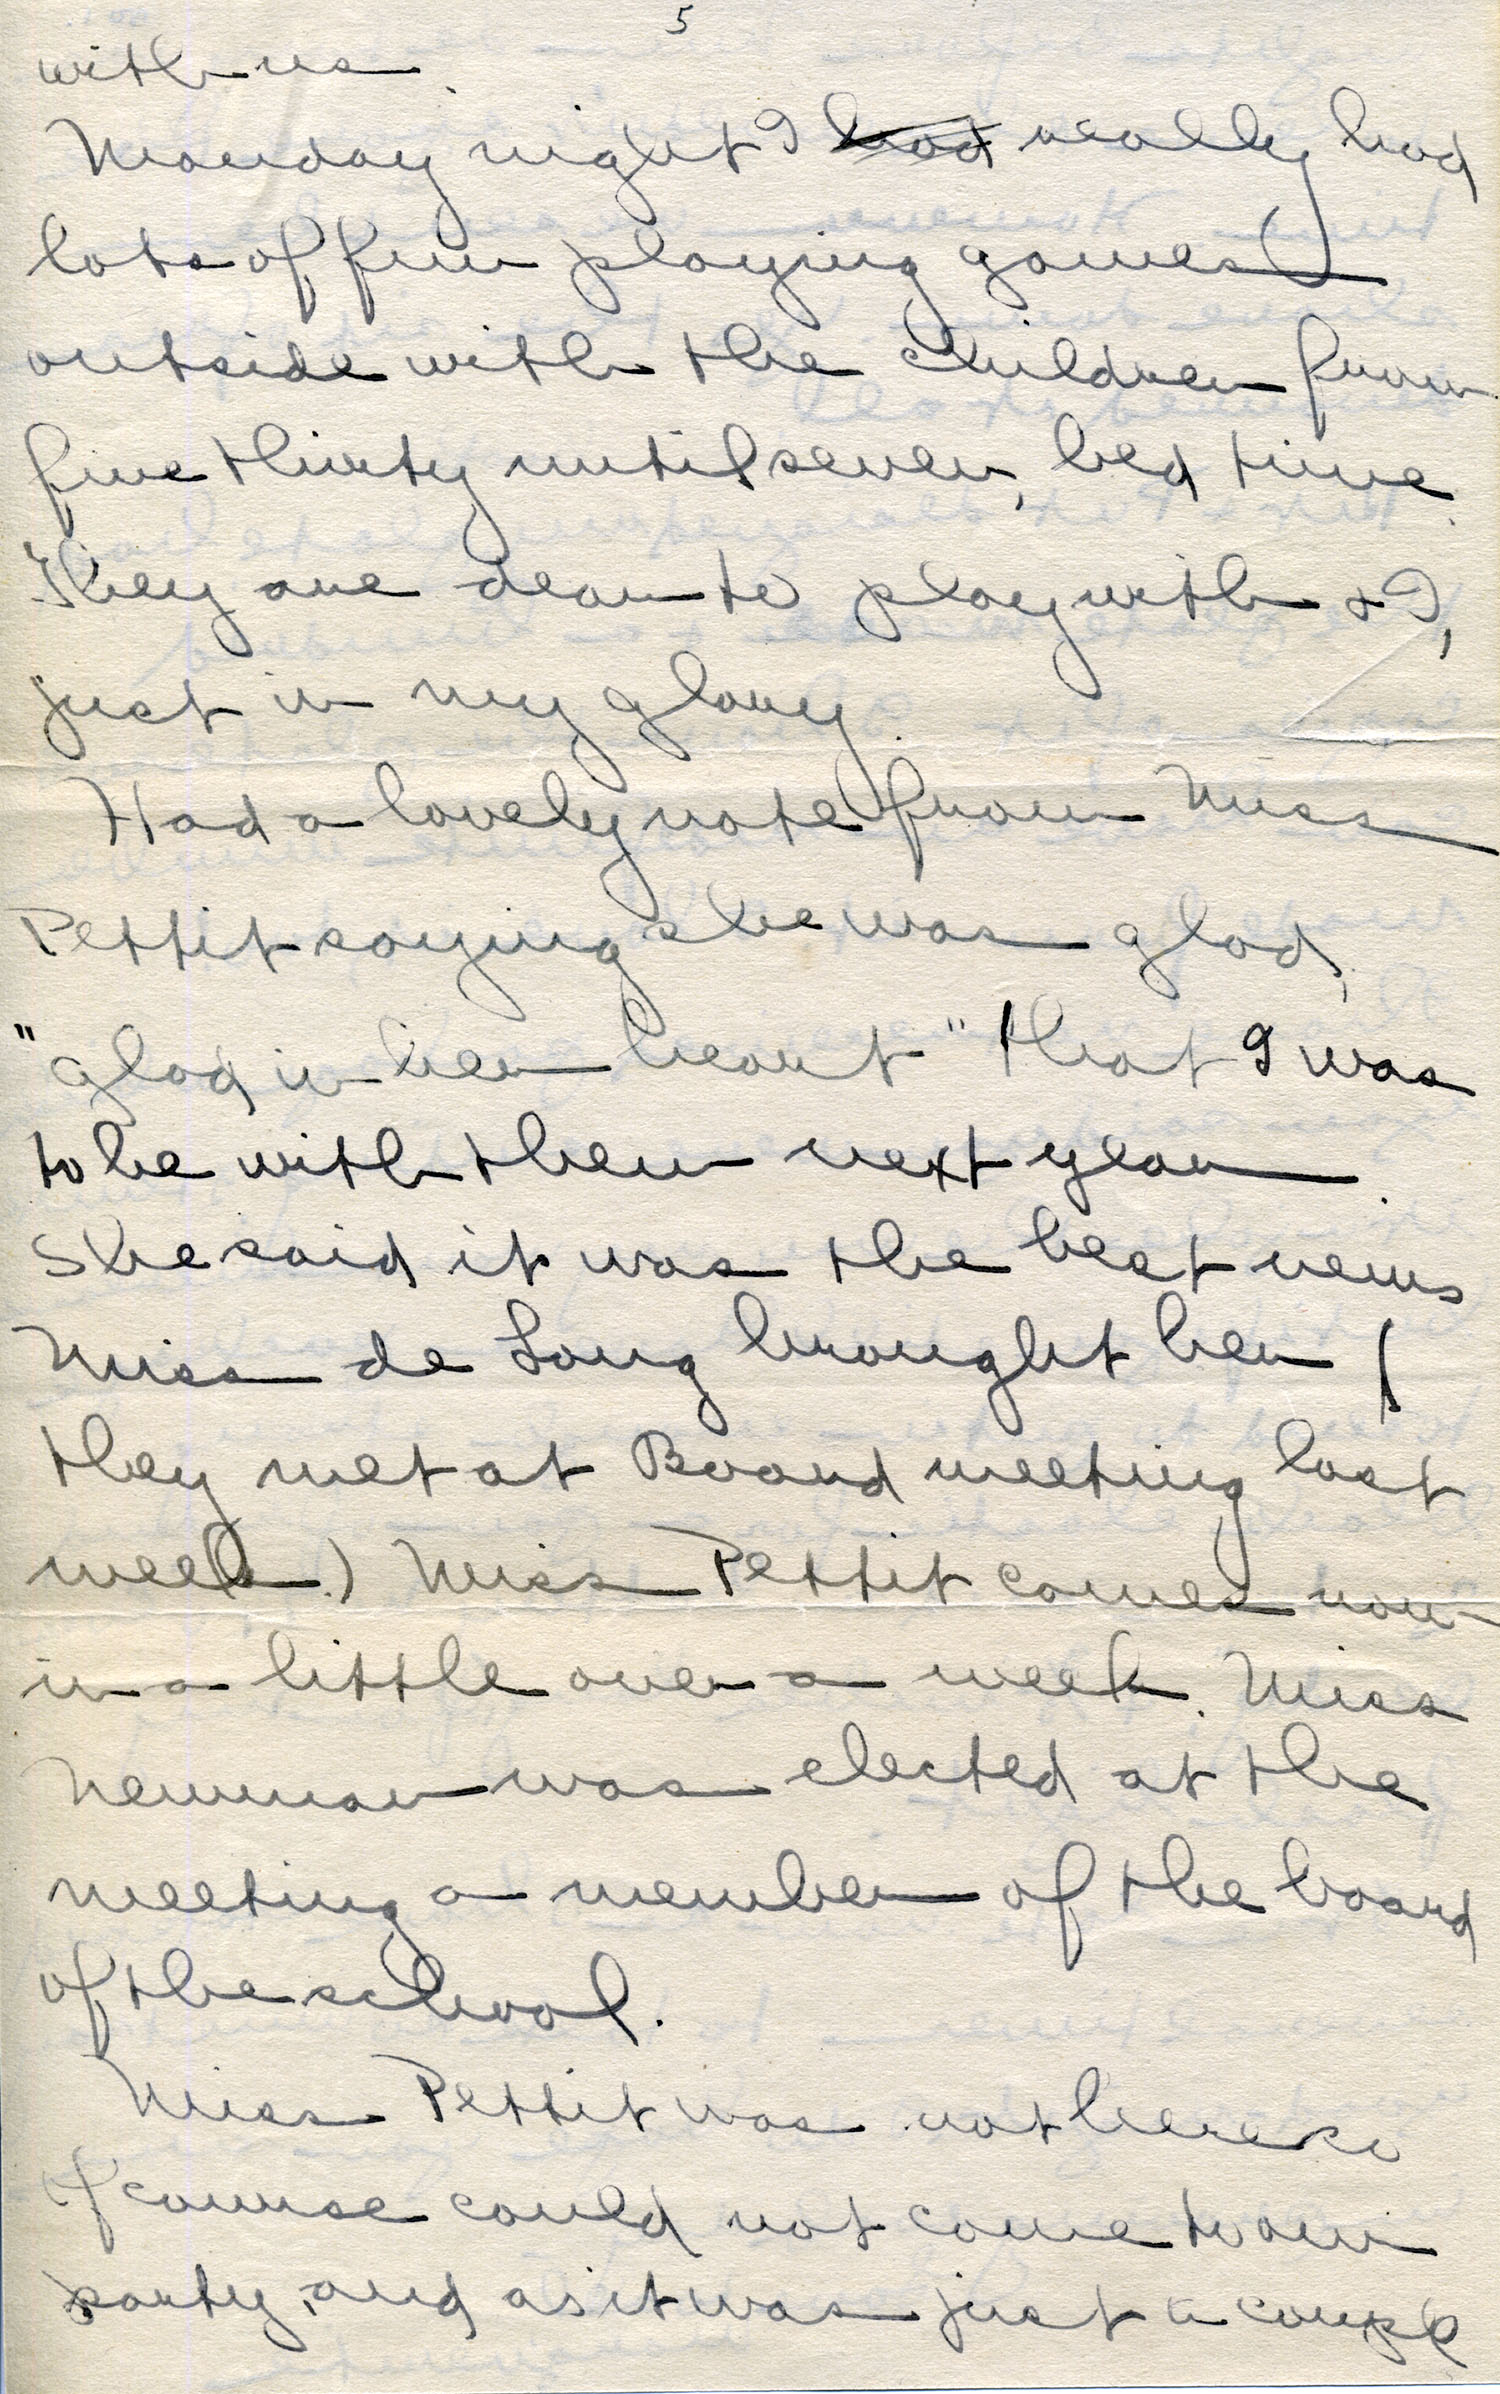 5
with us.
Monday night I had really had
lots of fun playing games
outside with the children from
five thirty until seven, bed time.
They are dear to play with & I,
just in my glory.
Had a lovely note from Miss
Pettit saying she was glad,
"glad in her heart" that I was
to be with them next year.
She said it was the best news
Miss de Long brought her (
they met at Board meeting last
week.) Miss Pettit comes now
in a little over a week. Miss
Newman was elected at the
meeting a member of the board
of the school.
Miss Pettit was not here so
of course could not come to our
party, and as it was just a couple